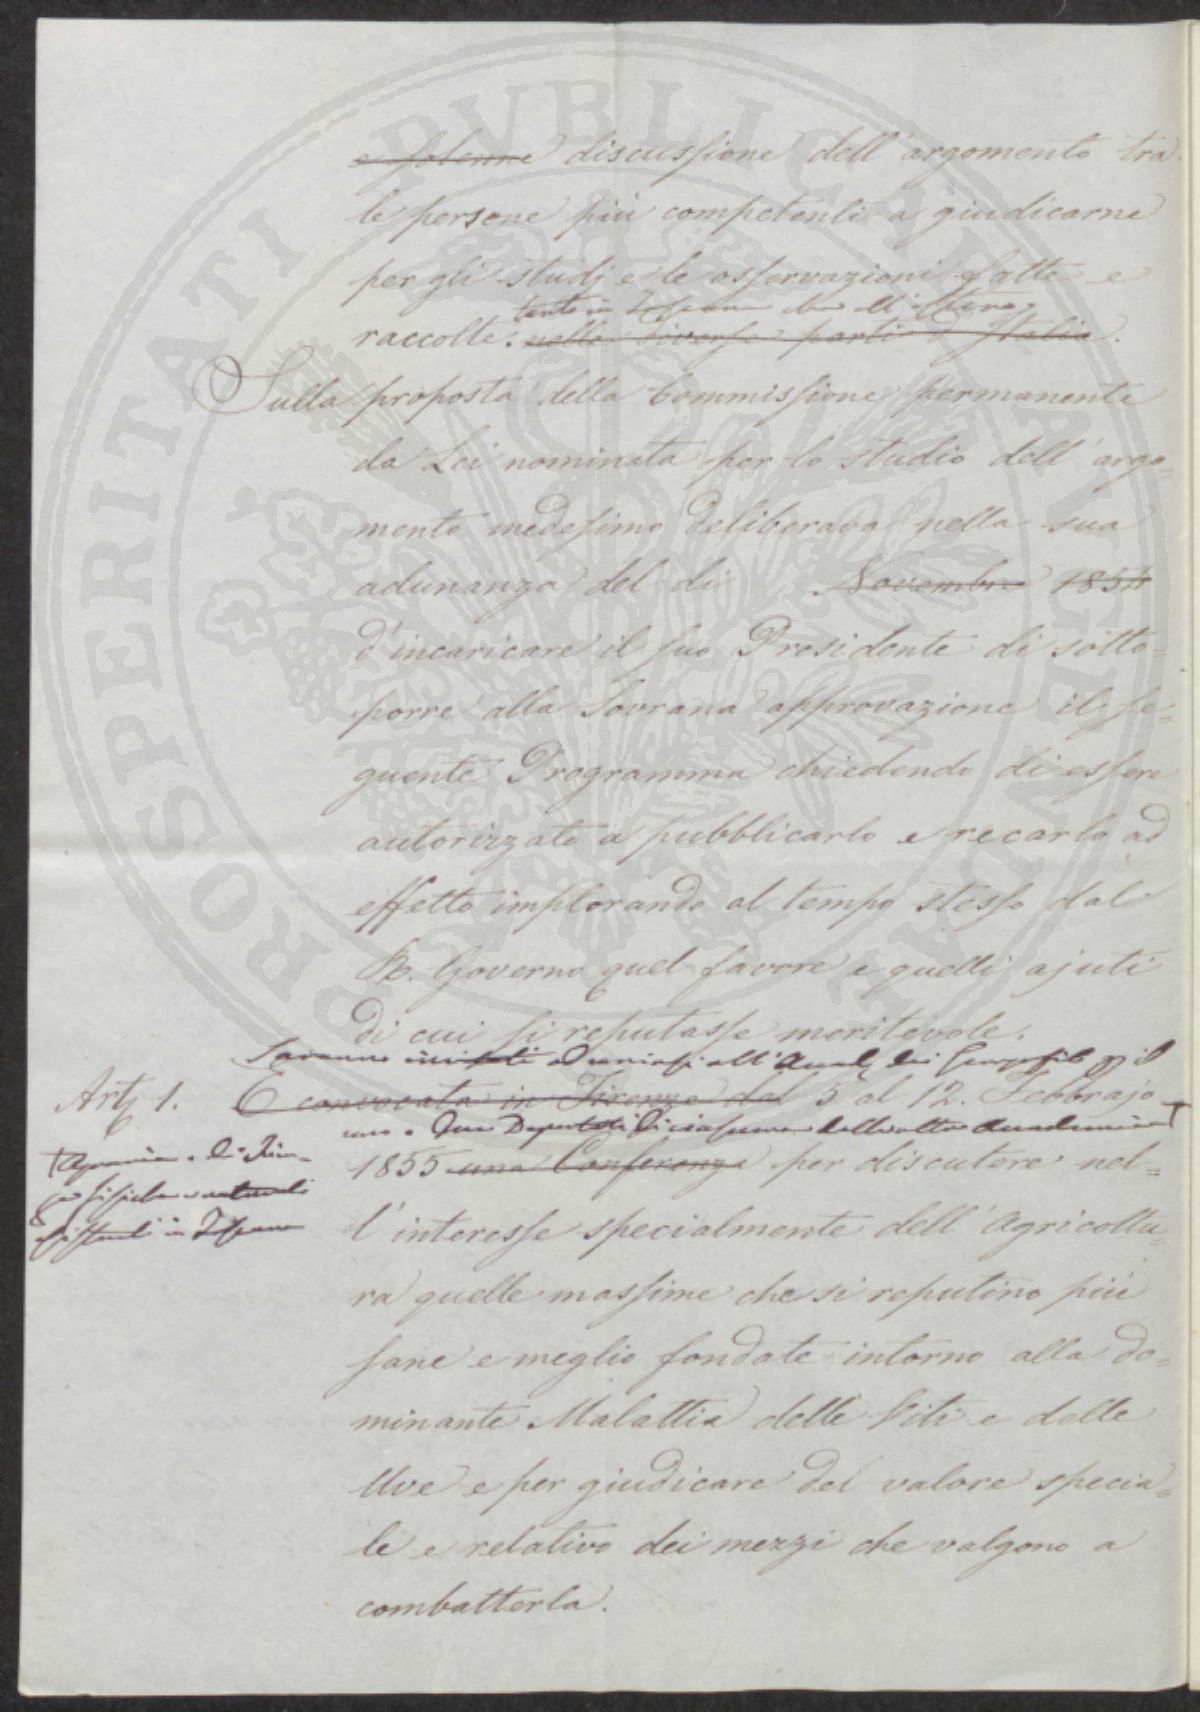 e solenne discussione dell'argomento tra
le persone più competenti a giudicarne
per gli studj e le osservazioni fatte e
tanto in Toscana che all'estero
raccolte. nelle diverse parti d'Italia.
Sulla proposta della Commissione permanente
da Lei nominata per lo studio dell'argo=
mento medesimo deliberava nella sua
adunanza del dì Novembre 1854
d'incaricare il suo Presidente di sotto=
porre alla Sovrana approvazione il se=
guente Programma chiedendo di essere
autorizzato a pubblicarlo e recarlo ad
effetto implorando al tempo stesso dal
R. Governo quel favore e quelli ajuti
di cui si reputasse meritevole.
Saranno invitati ad unirsi all'Accad. dei Georgofili il
Art. 1. E convocata in Firenze dal 5 al 12. Febbrajo
uno o due Deputati di ciascuna delle altre Accademie
1855 una Conferenza per discutere nel=
l'interesse specialmente dell'Agricoltu=
ra quelle massime che si reputino più
sane e meglio fondate intorno alla do=
minante Malattia delle Viti e delle
Uve e per giudicare del valore specia=
le e relativo dei mezzi che valgono a
combatterla.
Agrarie e di Scien-
ze fisiche e naturali
esistenti in Toscana
PROSPERITATI PVBLICAE AVGENDAE